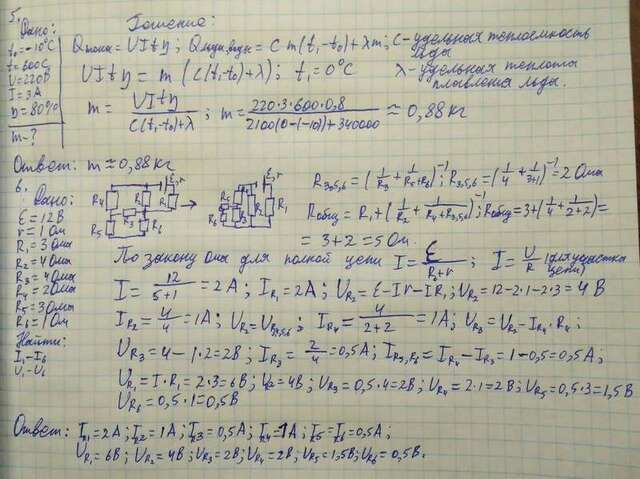 5.
Дано: Решение:
t₀ = -10°C Qтока = UItη; Qльда,воде = cm(t₁-t₀)+λm; С-удельная теплоемкость льда
t = 600с UItη = m(c(t₁-t₀)+λ); t₁ = 0°C λ-удельная теплота плавления льды.
U = 220В
I = 3А m = UItη / (c(t₁-t₀)+λ); m = 220·3·600·0,8 / (2100(0-(-10))+340000) ≈ 0,88 кг
η = 80%
m - ?
Ответ: m ≈ 0,88 кг
6.
Дано:
Ɛ = 12В
r = 1 Ом
R₁ = 3 Ома
R₂ = 4 Ома
R₃ = 4 Ома
R₄ = 2 Ома
R₅ = 3 Ома
R₆ = 1 Ом
Найти:
I₁-I₆
U₁-U₆
R₃,₅,₆ = (1/R₃ + 1/(R₅+R₆))⁻¹; R₃,₅,₆ = (1/4 + 1/(3+1))⁻¹ = 2 Ома
Rобщ = R₁ + (1/R₂ + 1/(R₄+R₃,₅,₆))⁻¹; Rобщ = 3 + (1/4 + 1/(2+2)) =
= 3+2 = 5 Ом.
По закону Ома для полной цепи I = Ɛ/(R₀+r); I = U/R (для участка цепи)
I = 12/(5+1) = 2А; I_R₁ = 2А; U_R₂ = Ɛ-Ir-IR₁; U_R₂ = 12-2·1-2·3 = 4 В
I_R₂ = 4/4 = 1А; U_R₂ = U_R₃,₄,₅,₆; I_R₄ = 4/(2+2) = 1А; U_R₃ = U_R₂-I_R₄·R₄;
U_R₃ = 4-1·2 = 2В; I_R₃ = 2/4 = 0,5А; I_R₅,R₆ = I_R₄-I_R₃ = 1-0,5 = 0,5А;
U_R₁ = I·R₁ = 2·3 = 6В; U₂ = 4В; U_R₃ = 0,5·4 = 2В; U_R₄ = 2·1 = 2В; U_R₅ = 0,5·3 = 1,5В
U_R₆ = 0,5·1 = 0,5В
Ответ: I_R₁ = 2А; I_R₂ = 1А; I_R₃ = 0,5А; I_R₄ = 1А; I_R₅ = I_R₆ = 0,5А;
U_R₁ = 6В; U_R₂ = 4В; U_R₃ = 2В; U_R₄ = 2В; U_R₅ = 1,5В; U_R₆ = 0,5В.